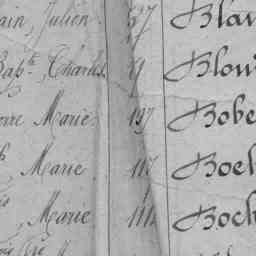 ain, Julien. 37 Blan
Bapte, Charles. 61 Blon
erre Marie. 197 Bobe
Marie. 117 Boel
Marie 111 Boch